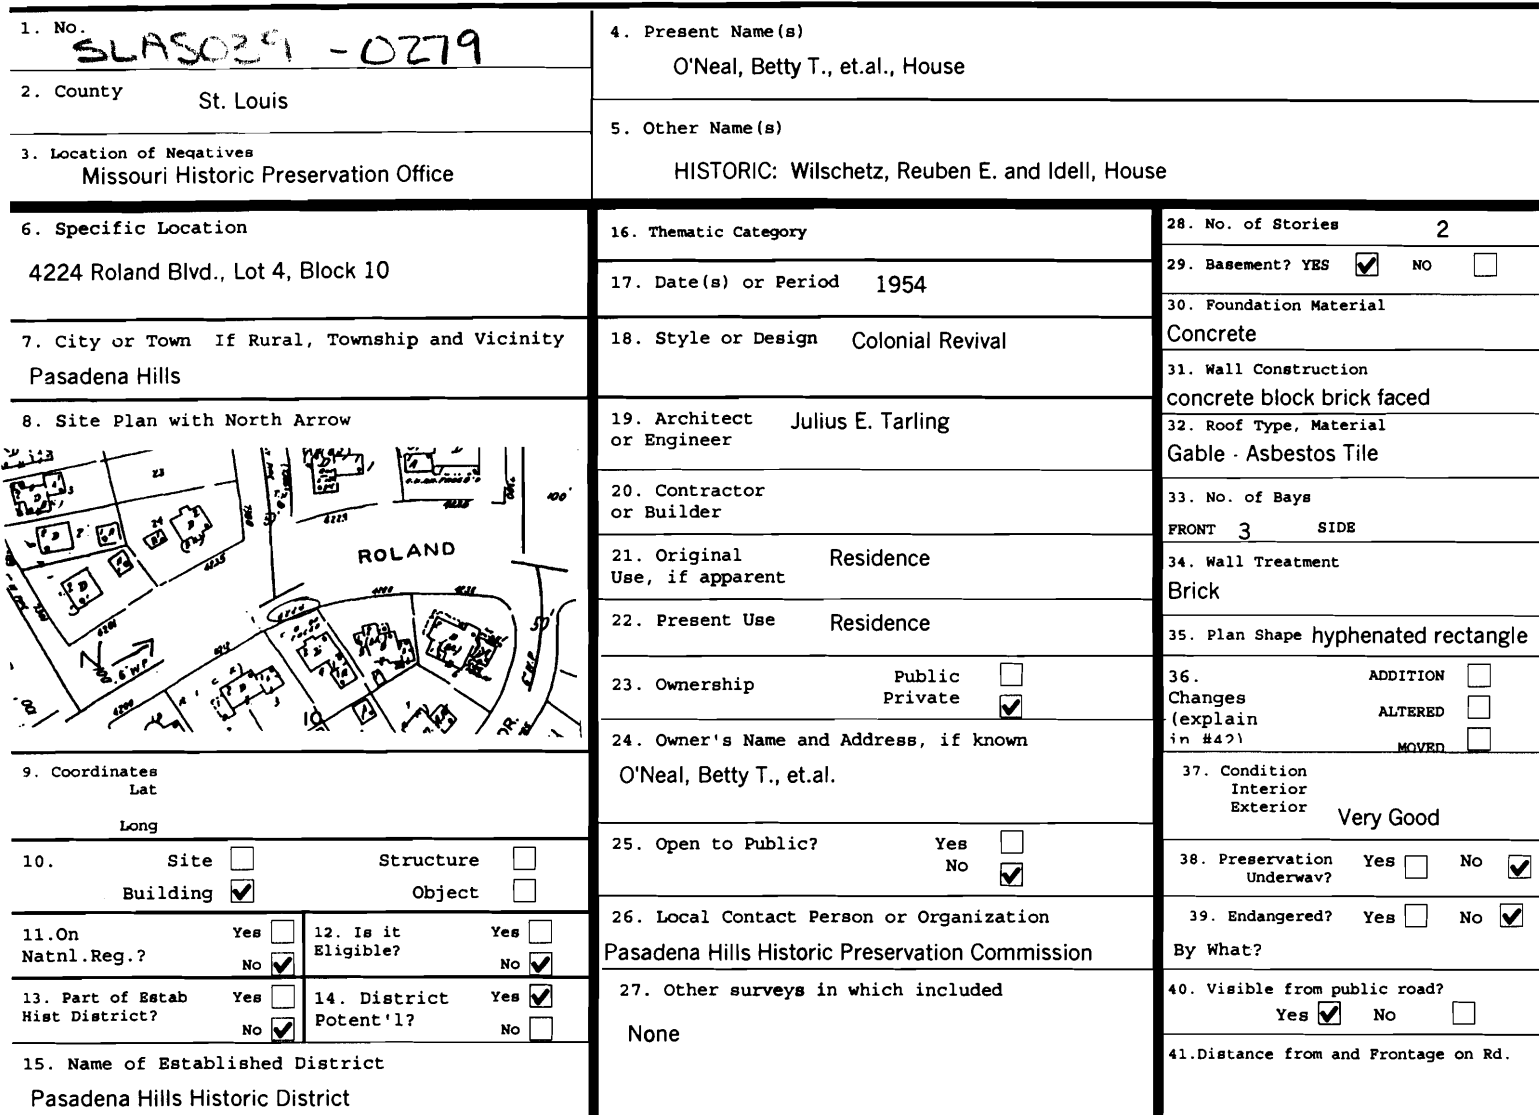 1. No.
SLAS029 -0279
2. County
St. Louis
3. Location of Negatives
Missouri Historic Preservation Office
4. Present Name(s)
O'Neal, Betty T., et.al., House
5. Other Name(s)
HISTORIC: Wilschetz, Reuben E. and Idell, House
6. Specific Location
4224 Roland Blvd., Lot 4, Block 10
7. City or Town If Rural, Township and Vicinity
Pasadena Hills
8. Site Plan with North Arrow
23
24
4229
4235
100'
ROLAND
50'
6' W.P.
10
DR.
9. Coordinates
Lat
Long
10. Site
Structure
Building
Object
11.On
Natnl.Reg.?
Yes
No
12. Is it
Eligible?
Yes
No
13. Part of Estab
Hist District?
Yes
No
14. District
Potent'l?
Yes
No
15. Name of Established District
Pasadena Hills Historic District
16. Thematic Category
17. Date(s) or Period 1954
18. Style or Design Colonial Revival
19. Architect
or Engineer
Julius E. Tarling
20. Contractor
or Builder
21. Original
Use, if apparent
Residence
22. Present Use Residence
23. Ownership
Public
Private
24. Owner's Name and Address, if known
O'Neal, Betty T., et.al.
25. Open to Public? Yes
No
26. Local Contact Person or Organization
Pasadena Hills Historic Preservation Commission
27. Other surveys in which included
None
28. No. of Stories 2
29. Basement? YES NO
30. Foundation Material
Concrete
31. Wall Construction
concrete block brick faced
32. Roof Type, Material
Gable - Asbestos Tile
33. No. of Bays
FRONT 3 SIDE
34. Wall Treatment
Brick
35. Plan Shape hyphenated rectangle
36.
Changes
(explain
in #42)
ADDITION
ALTERED
MOVED
37. Condition
Interior
Exterior Very Good
38. Preservation
Underway?
Yes No
39. Endangered? Yes No
By What?
40. Visible from public road?
Yes No
41.Distance from and Frontage on Rd.